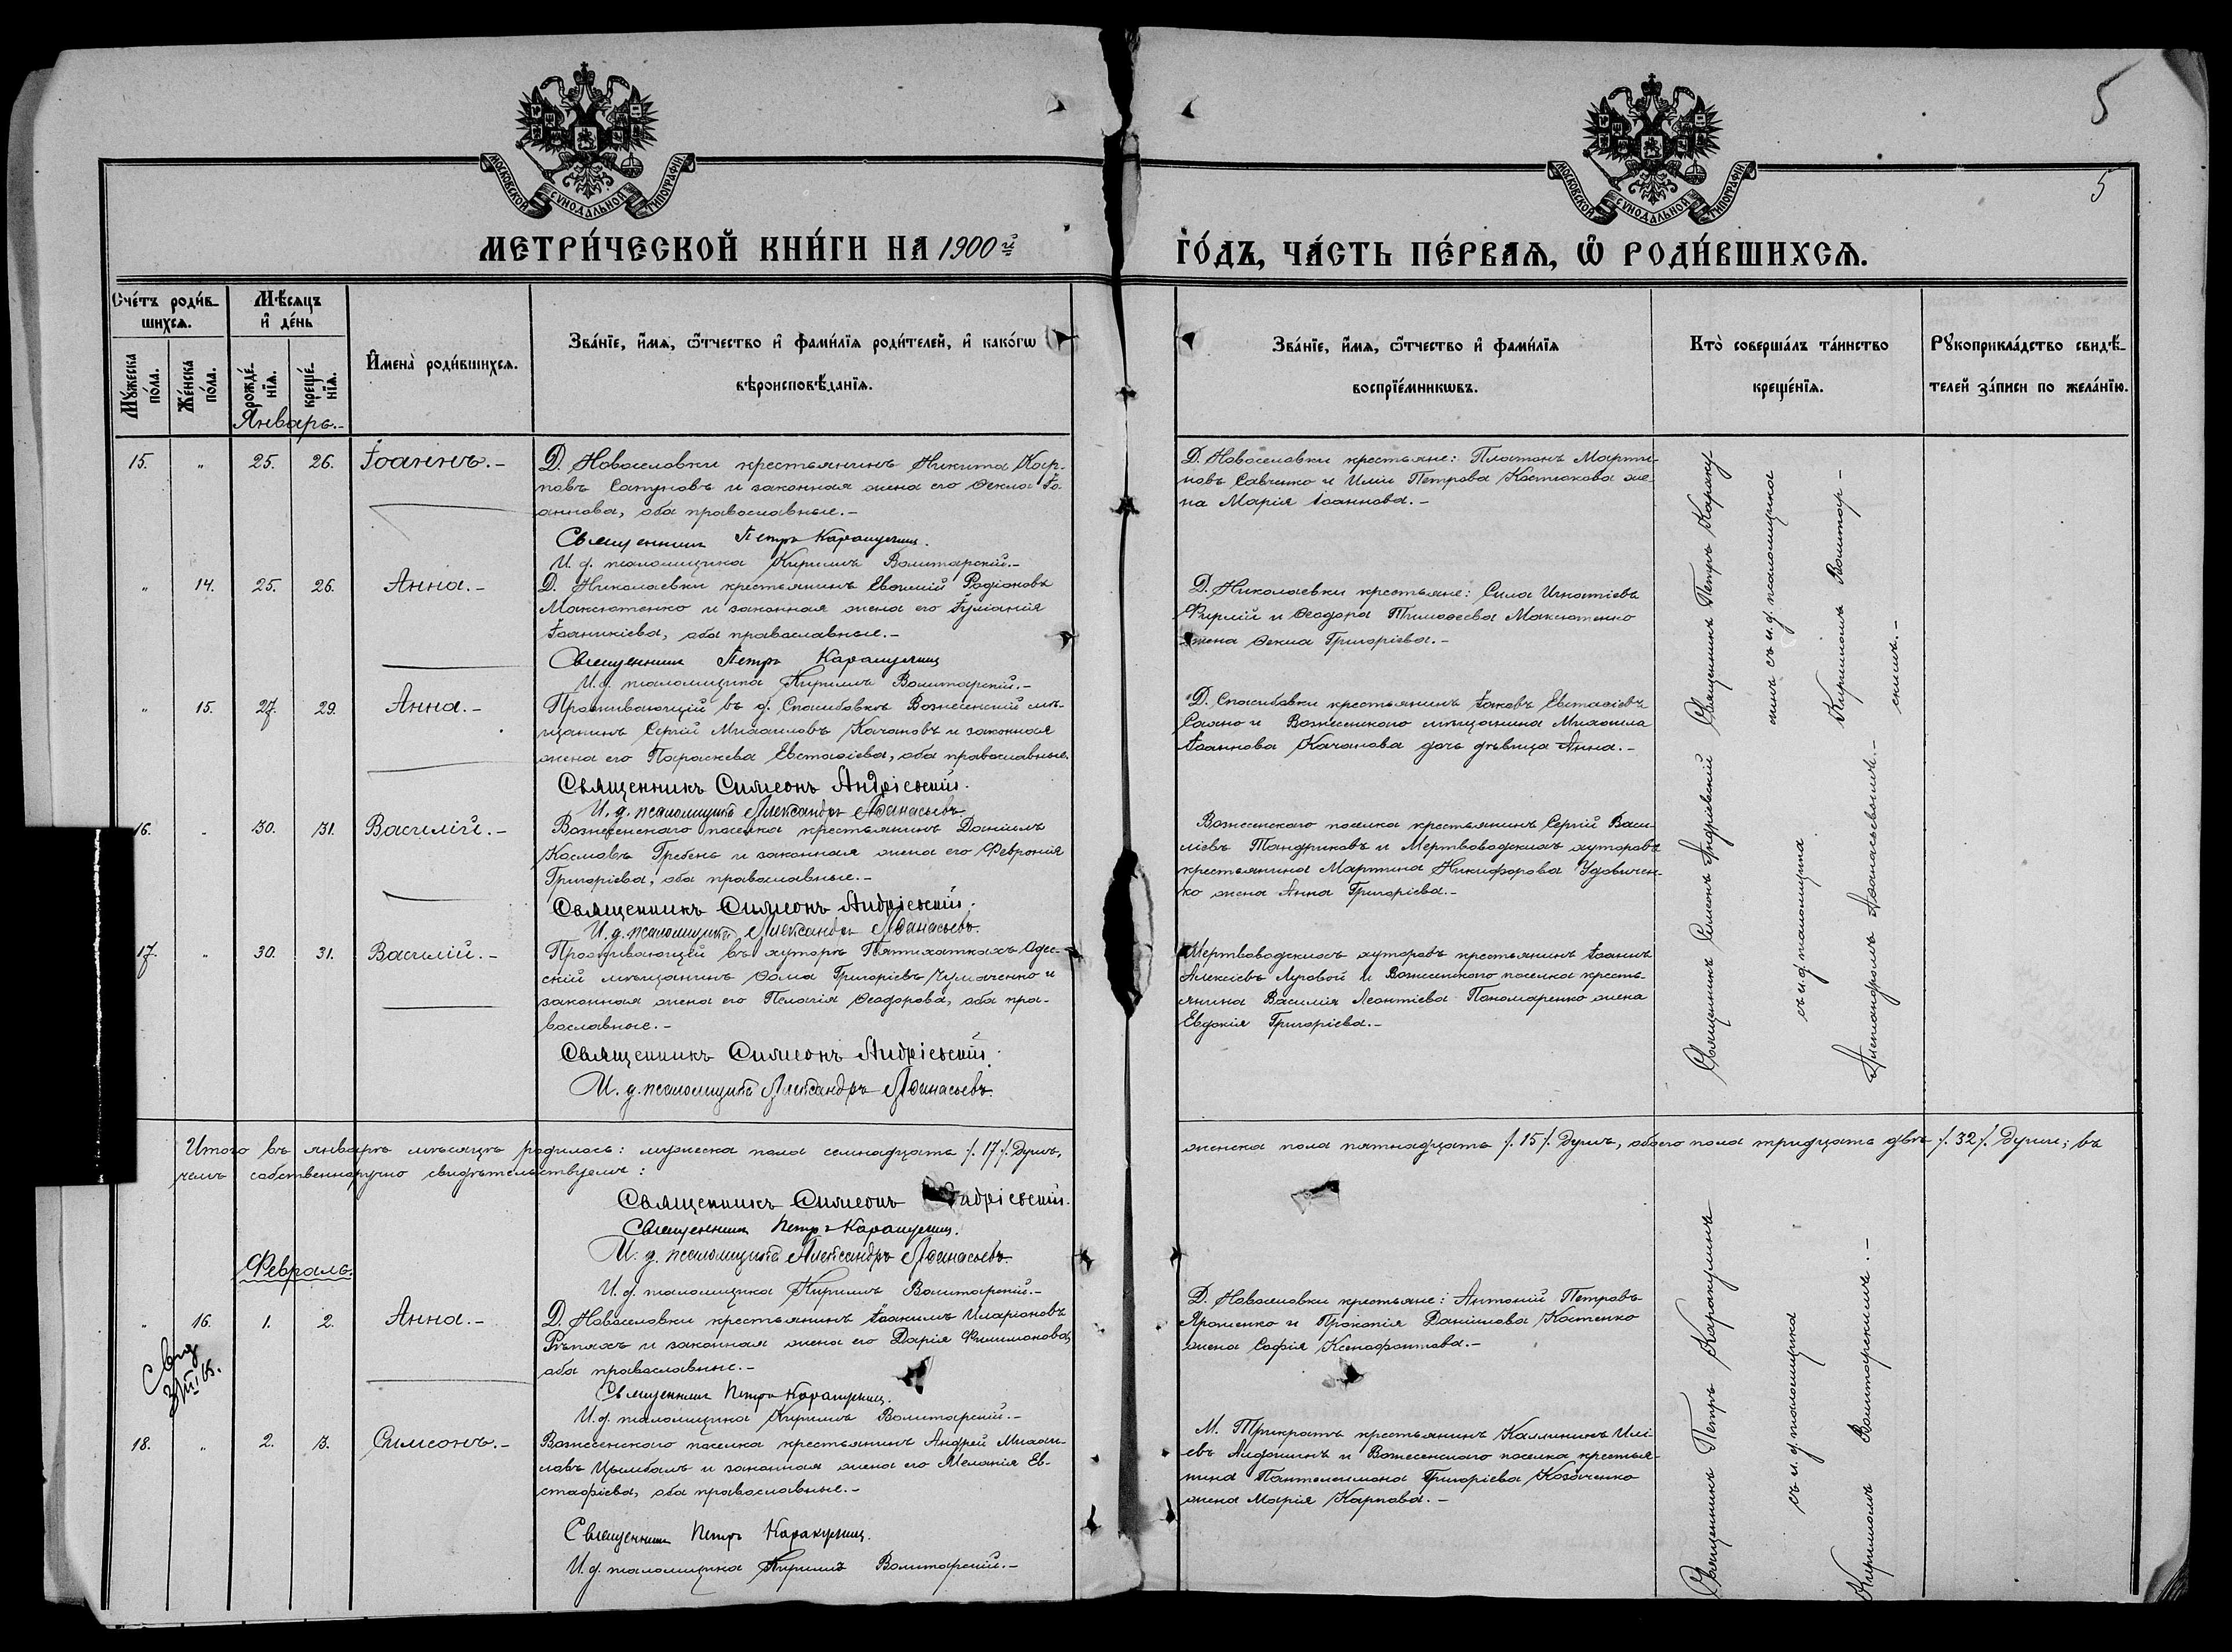 5
МОСКОВСКОЙ СѴНОДАЛЬНОЙ ТИПОГРАФІИ
МОСКОВСКОЙ СѴНОДАЛЬНОЙ ТИПОГРАФІИ
5
МЕТРИ́ЧЕСКОЙ КНИ́ГИ НА 1900й
ГО́ДЪ, ЧА́СТЬ ПЕ́РВАѦ, Ѡ҆ РОДИ́ВШИХСѦ.
Сче́тъ роди́в-
шихсѧ.
Мѣ́сѧцъ
и҆ де́нь
Мꙋ́жеска
по́ла.
Же́нска
по́ла.
рожде́-
нїѧ.
креще́-
нїѧ.
И҆мена̀ роди́вшихсѧ.
Зва́нїе, и҆́мѧ, ѻ҆́тчество и҆ фами́лїѧ роди́телей, и҆ како́гѡ
вѣроисповѣ́данїѧ.
Зва́нїе, и҆́мѧ, ѻ҆́тчество и҆ фами́лїѧ
воспрїе́мникѡвъ.
Кто̀ соверша́лъ та́инство
креще́нїѧ.
Рꙋкоприкла́дство свидѣ́-
телей за́писи по жела́нїю.
Январь.-
15. " 25. 26. Іоаннъ.-
Д. Новоселовки крестьянинъ Никита Кар-
повъ Сапуновъ и законная жена его Ѳекла Іо-
аннова, оба православные.-
Священникъ Петръ Каракулинъ.
И. д. псаломщика Кириллъ Волитарскій.-
Д. Новоселовки крестьяне: Платонъ Марти-
новъ Савченко и Иліи Петрова Костюкова же-
на Марія Іоаннова.-
" 14. 25. 26. Анна.-
Д. Николаевки крестьянинъ Евѳимій Родіоновъ
Максютенко и законная жена его Іуліанія
Іоаникіева, оба православные.-
Священникъ Петръ Каракулинъ
И. д. псаломщика Кириллъ Волитарскій.-
Д. Николаевки крестьяне: Сила Игнатіевъ
Фирлій и Ѳеодора Тимоѳеева Максютенко
жена Ѳекла Григорієва.-
" 15. 27. 29. Анна.-
Проживающій въ д. Спасибовкѣ Вознесенскій мѣ-
щанинъ Сергій Михаиловъ Качановъ и законная
жена его Параскева Евстаѳіева, оба православные.
Священникъ Симеонъ Андріевскій.
И. д. псаломщика Александръ Аѳанасьевъ.
Д. Спасибовки крестьянинъ Іаковъ Евстаѳіевъ
Саяно и Вознесенскаго мѣщанина Михаила
Іоаннова Качанова дочь дѣвица Анна.-
16. " 30. 31. Василій.-
Вознесенскаго поселка крестьянинъ Даніилъ
Космовъ Гребень и законная жена его Февронія
Григоріева, оба православные.-
Священникъ Симеонъ Андріевскій.
И. д. псаломщика Александръ Аѳанасьевъ.
Вознесенскаго поселка крестьянинъ Сергій Васи-
ліевъ Тандриковъ и Мертвоводскихъ хуторовъ
крестьянина Мартина Никифорова Удовичен-
ко жена Анна Григоріева.-
17. " 30. 31. Василій.-
Проживающій въ хуторѣ Пятихаткахъ Одес-
скій мѣщанинъ Ѳома Григоріевъ Чумаченко и
законная жена его Пелагія Ѳеодорова, оба пра-
вославные.-
Священникъ Симеонъ Андріевскій.
И. д. псаломщика Александръ Аѳанасьевъ.
Мертвоводскихъ хуторовъ крестьянинъ Іоаннъ
Алексіевъ Луговой и Вознесенскаго поселка кресть-
янина Василія Леонтіева Пономаренко жена
Евдокія Григоріева.-
Священникъ Петръ Караку-
линъ съ и. д. псаломщика
Кирилломъ Волитар-
скимъ.-
Священникъ Симеонъ Андріевскій
съ и. д. псаломщика
Александромъ Аѳанасьевымъ.-
Итого въ январѣ мѣсяцѣ родилось: мужеска пола семнадцать /.17/. душъ,
женска пола пятнадцать /.15/. душъ, обоего пола тридцать двѣ /.32/. души; въ
чемъ собственноручно свидѣтельствуемъ:
Священникъ Симеонъ Андріевскій.
Священникъ Петръ Каракулинъ.
И. д. псаломщика Александръ Аѳанасьевъ.
И. д. псаломщика Кириллъ Волитарскій.-
Февраль.
" 16. 1. 2. Анна.-
Д. Новоселовки крестьянинъ Іоакимъ Иларіоновъ
Рѣпяхъ и законная жена его Дарія Филимонова,
оба православные.-
Священникъ Петръ Каракулинъ.
И. д. псаломщика Кириллъ Волитарскій.-
Д. Новоселовки крестьяне: Антоній Петровъ
Ярошенко и Прокопія Даніилова Костенко
жена Софія Ксенофонтова.-
18. " 2. 3. Симеонъ.-
Вознесенскаго поселка крестьянинъ Андрей Михаи-
ловъ Цымбалъ и законная жена его Меланія Ев-
стафіева, оба православные.-
Священникъ Петръ Каракулинъ.
И. д. псаломщика Кириллъ Волитарскій.-
М. Трикратъ крестьянинъ Каллиникъ Илі-
евъ Алдошинъ и Вознесенскаго поселка крестья-
нина Пантелеимона Григоріева Козаченко
жена Марія Карпова.-
Священникъ Петръ Каракулинъ
съ и. д. псаломщика
Кирилломъ Волитарскимъ.-